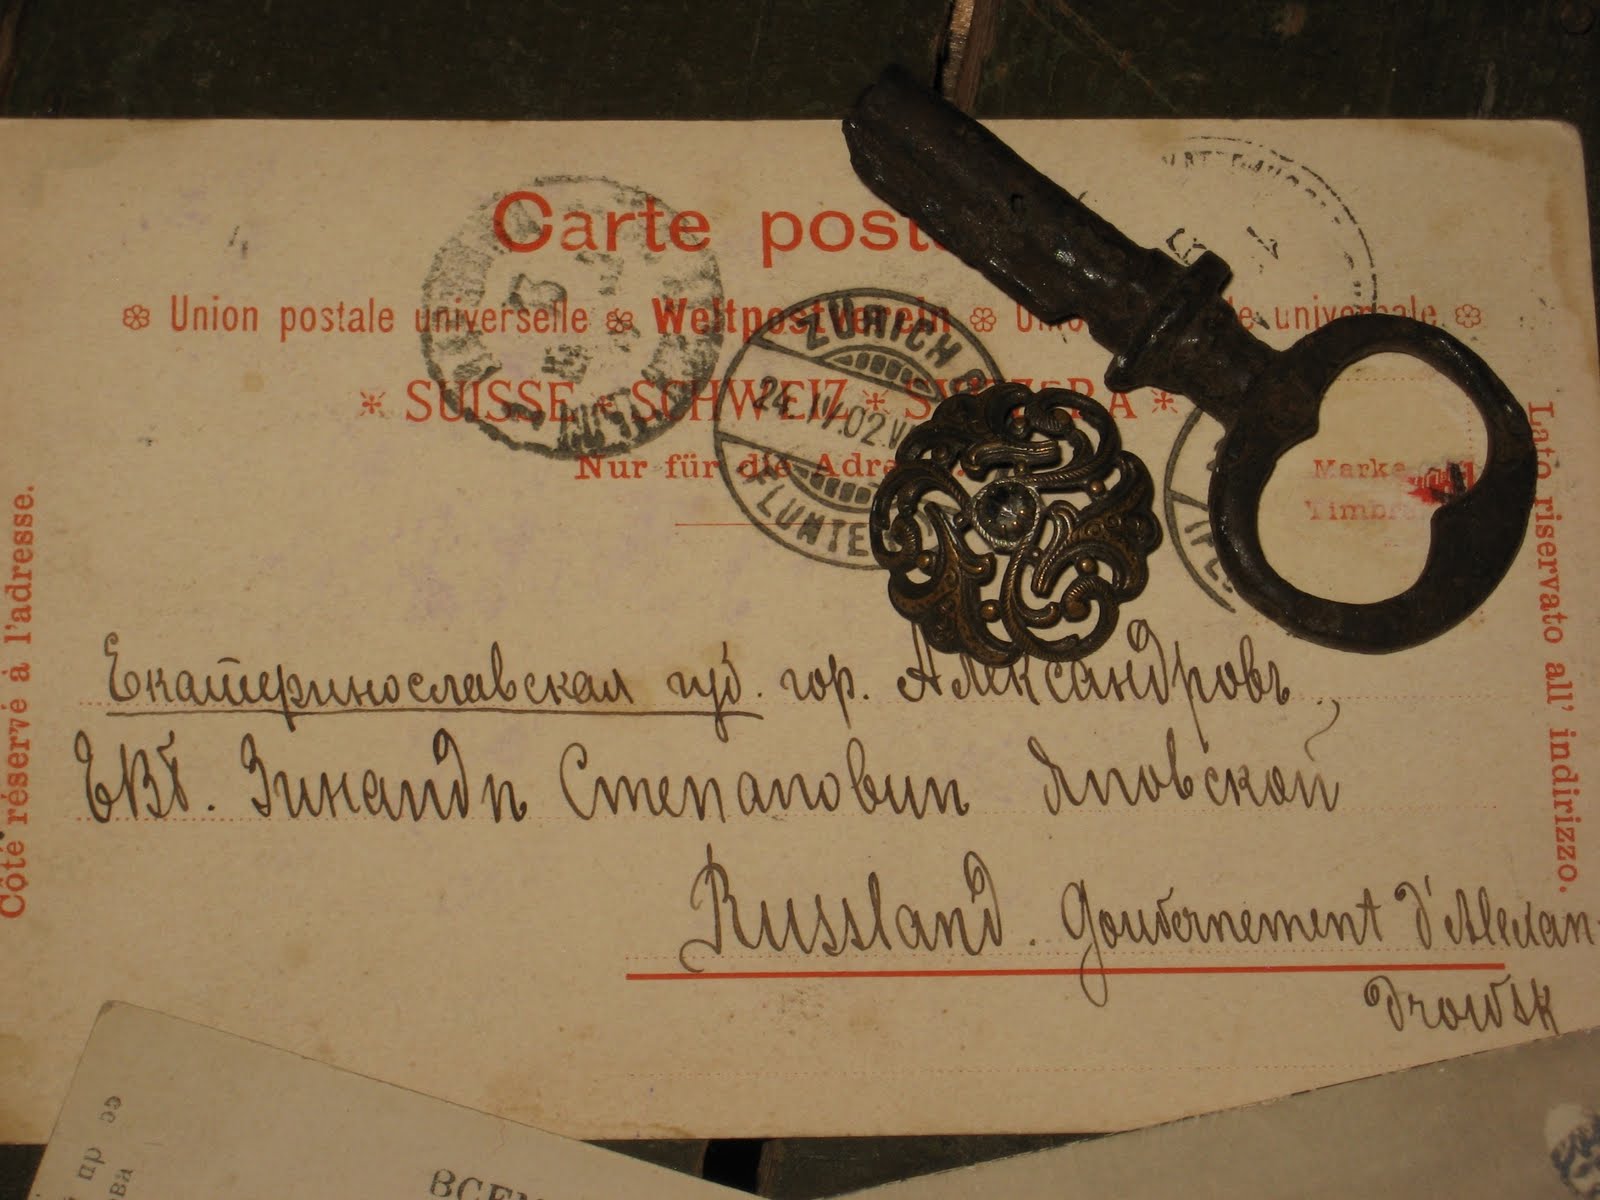 Carte post
Union postale universelle Weltpostverein universale
SUISSE SCHWEIZ SVIZZERA
Nur für die Adre
ZÜRICH
24.IV.02.VI
FLUNTE
Marke
Timbre
Côté réservé à l'adresse.
Lato riservato all' indirizzo.
Екатеринославская губ. гор. Александровъ,
ЕВБ. Зинаидѣ Степановнѣ Яновской
Russland. Gouvernement d'Alexan-
drowsk
ВСЕМ